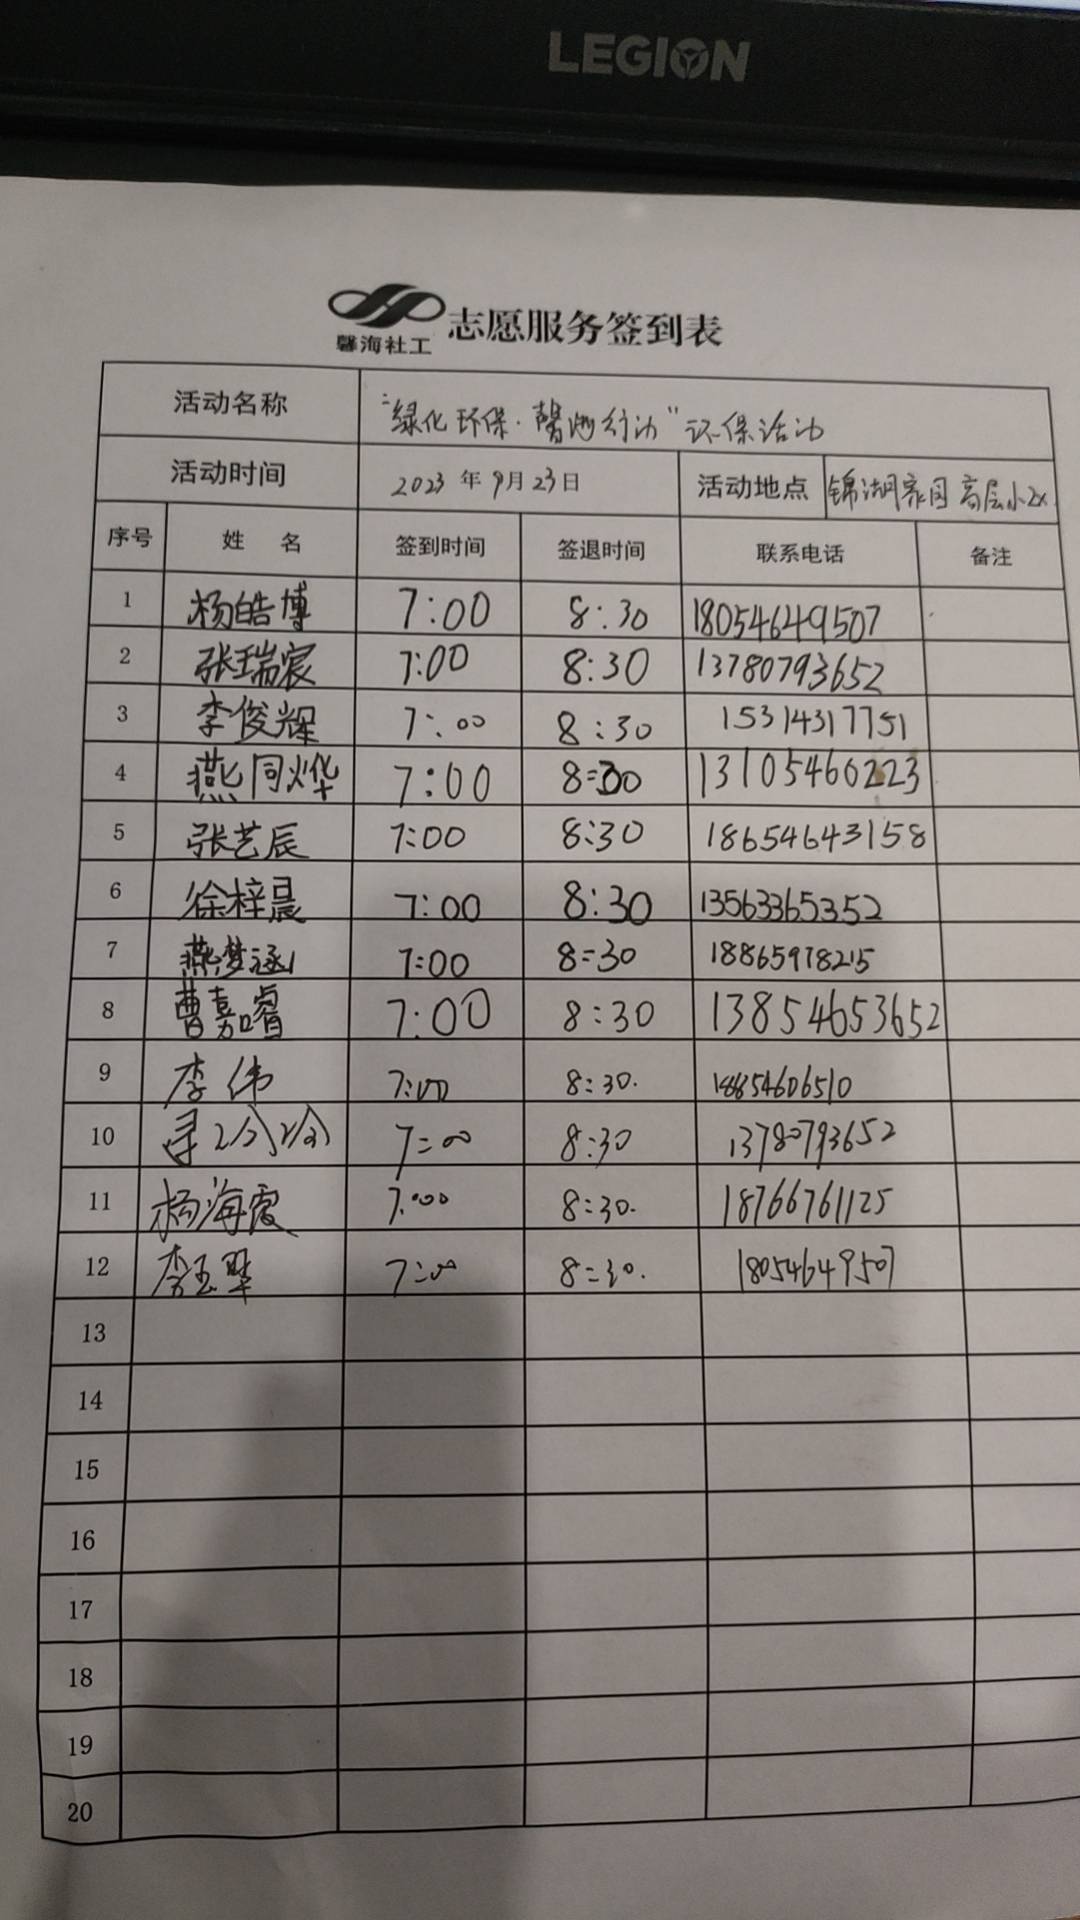 LEGION
馨海社工 志愿服务签到表
活动名称 “绿化环保·馨海行动”环保活动
活动时间 2023年9月23日 活动地点 锦湖家园高层小区
序号 姓名 签到时间 签退时间 联系电话 备注
1 杨皓博 7:00 8:30 18054649507
2 张瑞宸 7:00 8:30 13780793652
3 李俊辉 7:00 8:30 15314317751
4 燕同烨 7:00 8:30 13105460223
5 张艺辰 7:00 8:30 18654643158
6 徐梓晨 7:00 8:30 13563365352
7 燕梦涵 7:00 8:30 18865978215
8 曹嘉睿 7:00 8:30 13854653652
9 李伟 7:00 8:30. 18854606510
10 7:00 8:30 13780793652
11 杨海霞 7:00 8:30. 18766761125
12 李玉 7:00 8:30. 18054649507
13
14
15
16
17
18
19
20